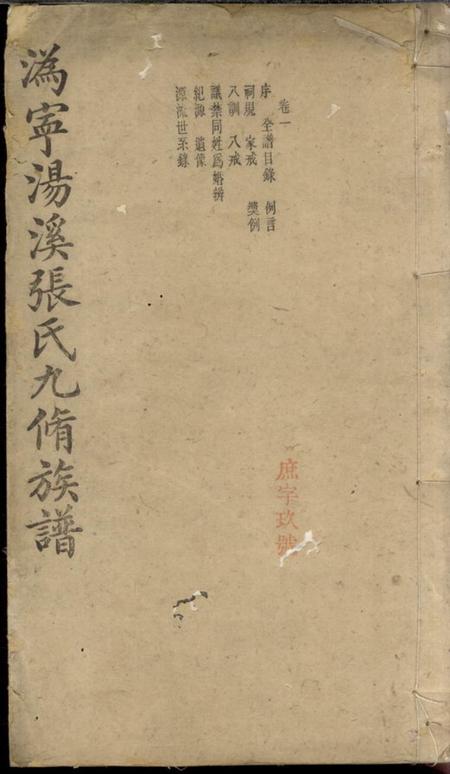 卷一
序 全譜目錄 例言
祠規 家戒 獎例
八訓 八戒
議禁同姓爲婚辨
紀源 遺像
源流世系錄
庶字玖號
溈寧湯溪張氏九脩族譜